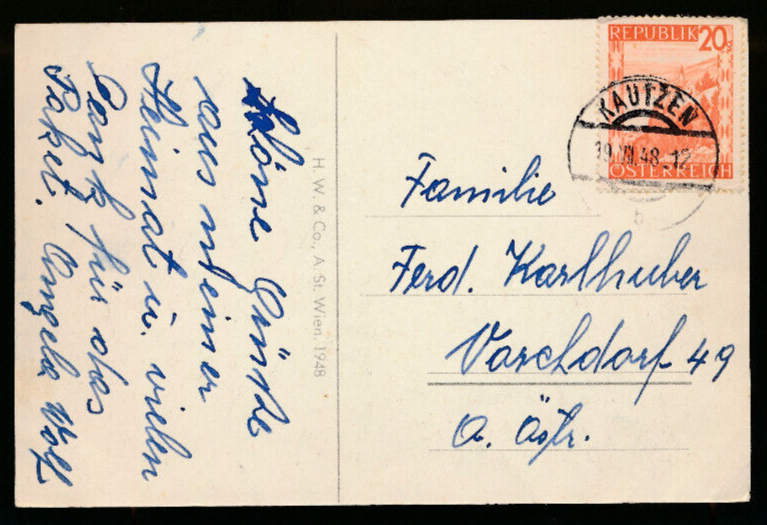 Schöne Grüße
aus meiner
Heimat u. vielen
Dank für das
Paket. Angela Wolf
H. W. & Co., A. St. Wien, 1948
REPUBLIK 20g
ÖSTERREICH
KAUTZEN
19.VII.48-12
b
Familie
Ferd. Karlhuber
Vorchdorf 49
O. Östr.